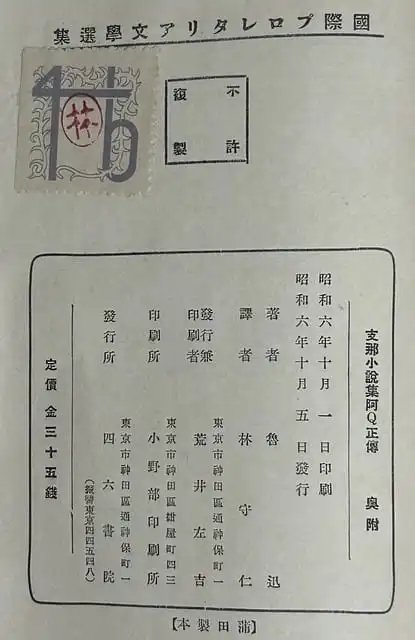 國際プロレタリア文學選集
46
林
不許
複製
支那小說集阿Q正傳 奧附
昭和六年十月一日印刷
昭和六年十月五日發行
著者 魯迅
譯者 林守仁
東京市神田區通神保町一
發行兼印刷者 荒井左吉
東京市神田區紺屋町四三
印刷所 小野部印刷所
東京市神田區通神保町一
發行所 四六書院
(振替東京四四五四八)
定價 金三十五錢
【蒲田製本】